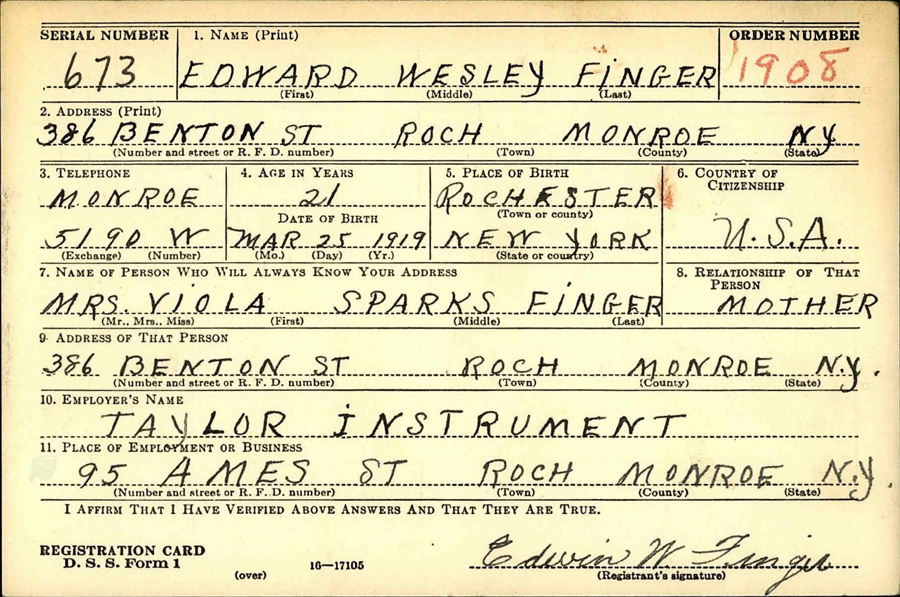 SERIAL NUMBER 1. NAME (Print) ORDER NUMBER
673 EDWARD WESLEY FINGER 1908
(First) (Middle) (Last)
2. ADDRESS (Print)
386 BENTON ST ROCH MONROE NY
(Number and street or R. F. D. number) (Town) (County) (State)
3. TELEPHONE 4. AGE IN YEARS 5. PLACE OF BIRTH 6. COUNTRY OF CITIZENSHIP
MONROE 21 ROCHESTER
DATE OF BIRTH (Town or county)
5190 W MAR 25 1919 NEW YORK U.S.A.
(Exchange) (Number) (Mo.) (Day) (Yr.) (State or country)
7. NAME OF PERSON WHO WILL ALWAYS KNOW YOUR ADDRESS 8. RELATIONSHIP OF THAT PERSON
MRS. VIOLA SPARKS FINGER MOTHER
(Mr., Mrs., Miss) (First) (Middle) (Last)
9. ADDRESS OF THAT PERSON
386 BENTON ST ROCH MONROE N.Y.
(Number and street or R. F. D. number) (Town) (County) (State)
10. EMPLOYER'S NAME
TAYLOR INSTRUMENT
11. PLACE OF EMPLOYMENT OR BUSINESS
95 AMES ST ROCH MONROE N.Y.
(Number and street or R. F. D. number) (Town) (County) (State)
I AFFIRM THAT I HAVE VERIFIED ABOVE ANSWERS AND THAT THEY ARE TRUE.
REGISTRATION CARD
D. S. S. Form 1 Edwin W. Finger
(over) 16—17105 (Registrant's signature)